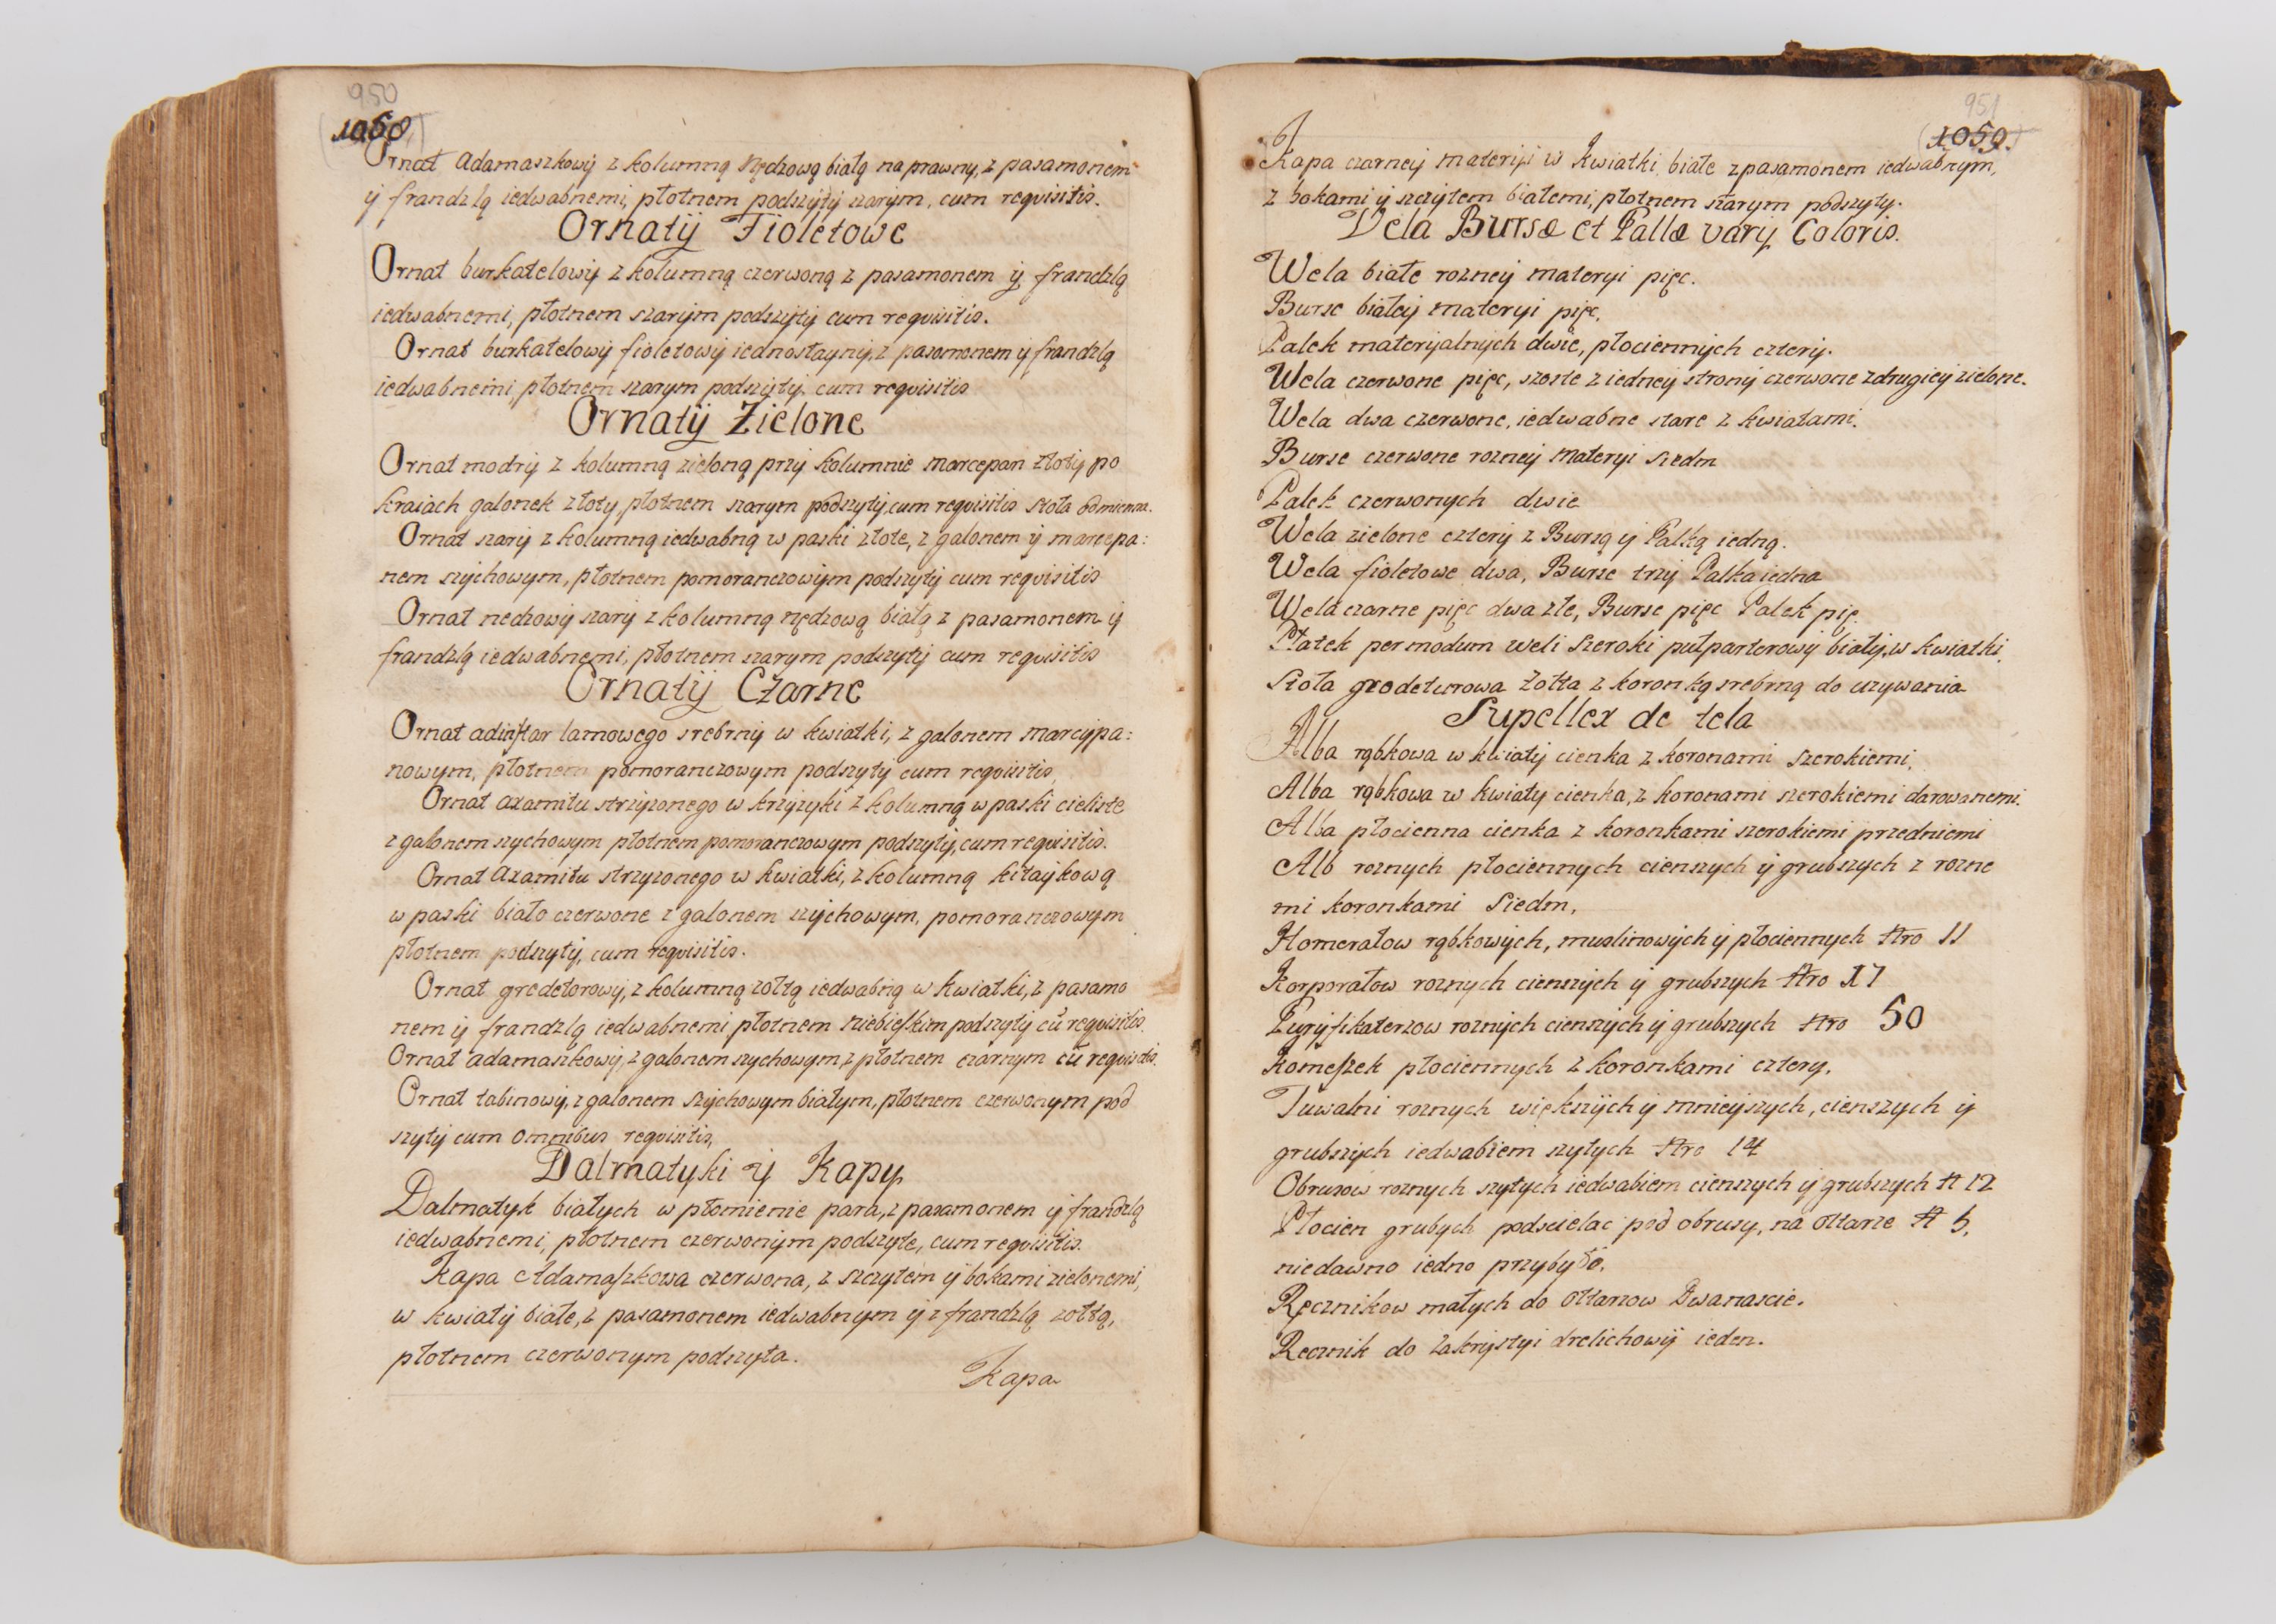 950
1058
Ornat adamaszkowÿ z kolumną nędzową białą naprawny, z pasamonem
ÿ frandzlą iedwabnemi, płotnem podszÿtÿ szarÿm, cum requisitis.
Ornatÿ Fioletowe
Ornat burkatelowÿ z kolumną czerwoną z pasamonem ÿ frandzlą
iedwabnemi, płotnem szarÿm podszÿtÿ cum requisitis.
Ornat burkatelowÿ fioletowÿ iednostaynÿ, z pasamonem ÿ frandzlą
iedwabnemi płotnem szarym podszÿtÿ cum requisitis
Ornatÿ Zielone
Ornat modrÿ z kolumną zieloną przÿ kolumnie marcepan złotÿ po
kraiach galonek złoty, płotnem szarym podszytÿ, cum requisitis Stoła odmienna.
Ornat szarÿ z kolumną iedwabną w paski złote, z galonem ÿ marcepa:
nem szÿchowym, płotnem pomoranczowÿm podszytÿ cum requisitis
Ornat nedzowÿ szarÿ z kolumną nędzową białą z pasamonem ÿ
frandzlą iedwabnemi, płotnem szarym podszytÿ cum requisitis
Ornatÿ Czarne
Ornat adinstar lamowego srebrnÿ w kwiatki, z galonem marcÿpa:
nowym, płotnem pomoranczowym podszytÿ cum requisitis,
Ornat axamitu strzÿzonego w krzÿzyki z kolumną w paski cieliste
z galonem szychowym płotnem pomoranczowym podszytÿ, cum requisitis.
Ornat axamitu strzyzonego w kwiatki, z kolumną kitaÿkową
w paski biało czerwone z galonem szÿchowym, pomoranczowym
płotnem podszytÿ, cum requisitis.
Ornat gredetorowy, z kolumną zołtą iedwabną w kwiatki, z pasamo
nem ÿ frandzlą iedwabnemi płotnem niebieskim podszytÿ cū requisitis.
Ornat adamaszkowÿ, z galonem szychowym, z płotnem czarnym cū requisitis.
Ornat tabinowÿ, z galonem szÿchowym białym, płotnem czerwonym pod
szytÿ cum omnibus requisitis,
Dalmatyki ÿ Kapy
Dalmatyk białych w płomienie para, z pasamonem ÿ frandzlą
iedwabnemi, płotnem czerwonÿm podszyte, cum requisitis.
Kapa Adamaszkowa czerwona, z szczytem ÿ bokami zielonemi,
w kwiatÿ białe, z pasamonem iedwabnym ÿ z frandzlą zołtą,
płotnem czerwonym podszyta.
Kapa
951
1059.
Kapa czarneÿ materÿi w kwiatki białe z pasamonem iedwabnym,
z bokami ÿ szczÿtem białemi, płotnem szarym podszyty.
Vela Bursæ et Pallæ varÿ Coloris.
Wela białe rozneÿ materyi pięc.
Burse białeÿ materyi pięc.
Palek materÿalnÿch dwie, płociennÿch czterÿ.
Wela czerwone pięc, szoste z iedneÿ stronÿ czerwone z drugieÿ zielone.
Wela dwa czerwone, iedwabne stare z kwiatami.
Burse czerwone rozneÿ materyi siedm
Palek czerwonych dwie
Wela zielone czterÿ z Bursą ÿ Palką iedną.
Wela fioletowe dwa, Burse trzÿ Palka iedna
Wela czarne pięc dwa złe, Burse pięc Palek pię.
Płatek per modum weli szeroki pułparterowÿ białÿ, w kwiatki.
Stoła grodeturowa zołta z koronką srebrną do uzywania
Supellex de tela
Alba rąbkowa w kwiatÿ cienka z koronami szerokiemi,
Alba rąbkowa w kwiatÿ cienka, z koronami szerokiemi darowanemi.
Alba płocienna cienka z koronkami szerokiemi przedniemi
Alb roznych płociennych cienszych ÿ grubszych z rozne
mi koronkami Siedm,
Homerałow rąbkowÿch, muslinowÿch ÿ płociennych Nro 11
Korporałow roznych cienszÿch ÿ grubszych Nro 17
Purÿfikaterzow roznÿch cienszÿch ÿ grubszych Nro 50
Komeszek płociennych z koronkami cztery.
Tuwalni roznych większÿch ÿ mnieÿszych, cienszych ÿ
grubszÿch iedwabiem szytych Nro 14
Obrusow roznych szytych iedwabiem cienszych ÿ grubszych N 12
Płocien grubych podscielac pod obrusy, na ołtarze N 5,
niedawno iedno przybyło.
Ręcznikow małych do ołtarzow Dwanascie.
Recznik do Zakrÿstyi drelichowÿ ieden.